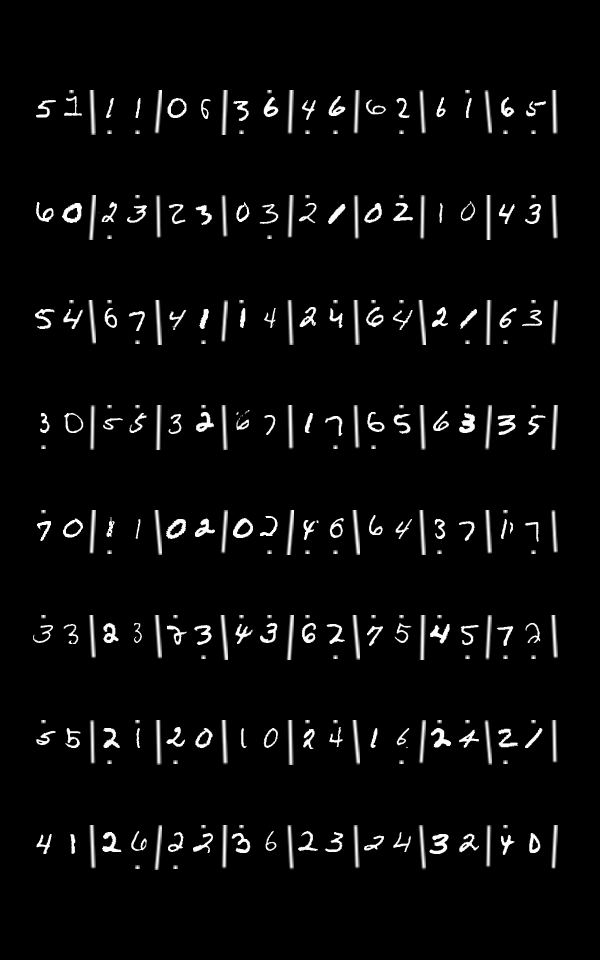 5 1 | 1 1 | 0 6 | 3 6 | 4 6 | 6 2 | 6 1 | 6 5 |
6 0 | 2 3 | 2 3 | 0 3 | 2 1 | 0 2 | 1 0 | 4 3 |
5 4 | 6 7 | 4 1 | 1 4 | 2 4 | 6 4 | 2 1 | 6 3 |
3 0 | 5 5 | 3 2 | 6 7 | 1 7 | 6 5 | 6 3 | 3 5 |
7 0 | 1 1 | 0 2 | 0 2 | 4 6 | 6 4 | 3 7 | 1 7 |
3 3 | 2 3 | 2 3 | 4 3 | 6 2 | 7 5 | 4 5 | 7 2 |
5 5 | 2 1 | 2 0 | 1 0 | 2 4 | 1 6 | 2 4 | 2 1 |
4 1 | 2 6 | 2 2 | 3 6 | 2 3 | 2 4 | 3 2 | 4 0 |